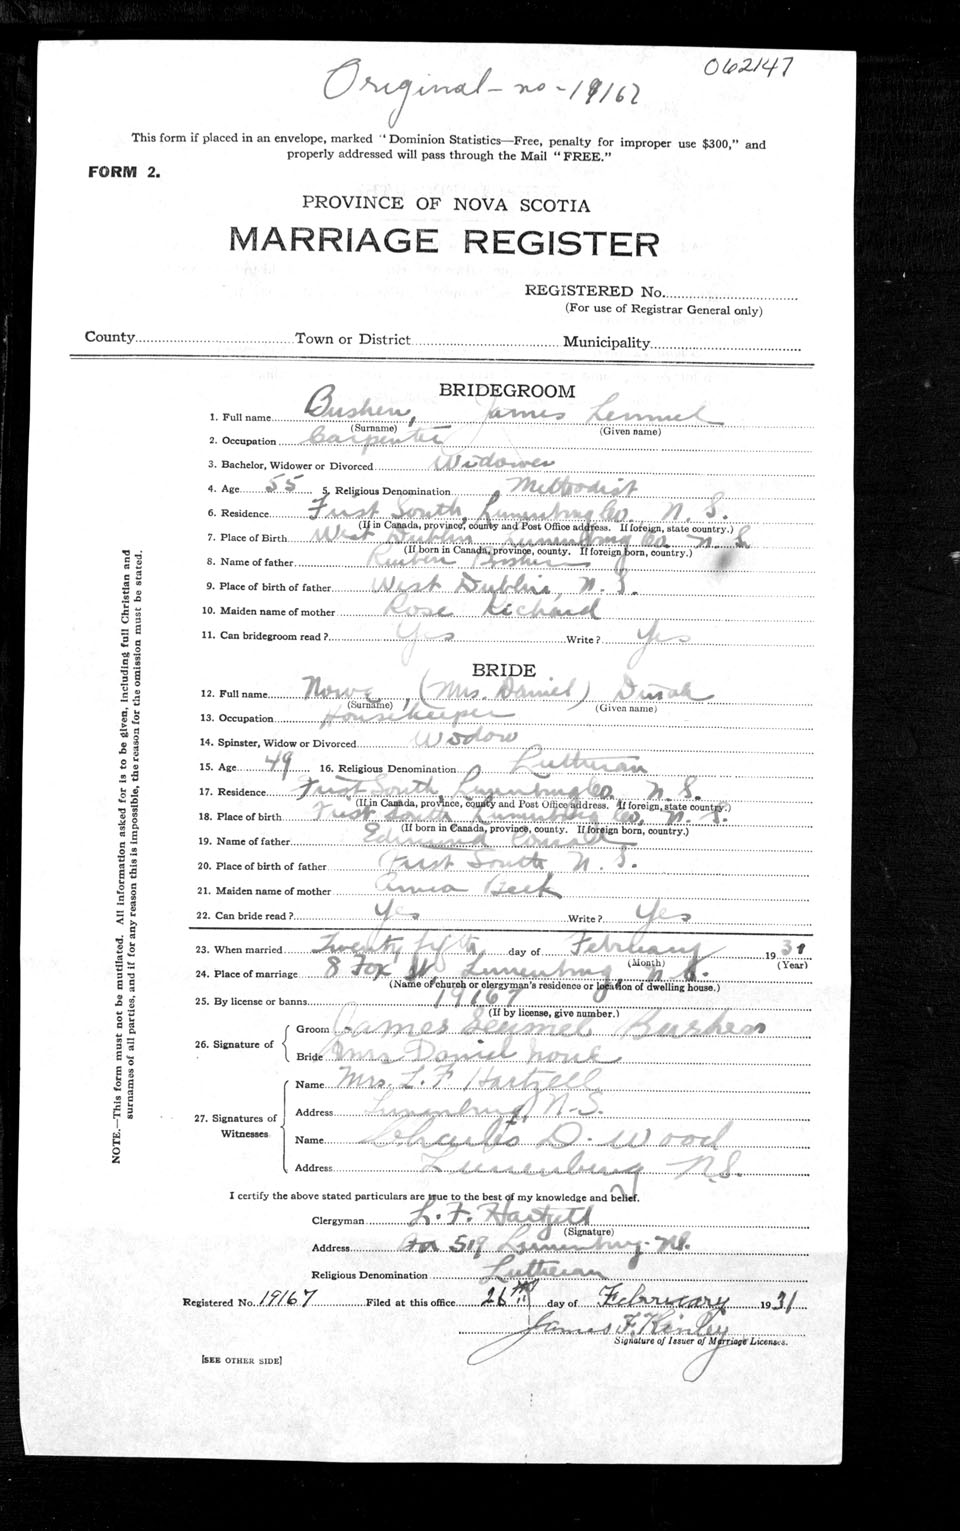 062147
Original - no - 19167
This form if placed in an envelope, marked "Dominion Statistics—Free, penalty for improper use $300," and
properly addressed will pass through the Mail "FREE."
FORM 2.
PROVINCE OF NOVA SCOTIA
MARRIAGE REGISTER
REGISTERED No.
(For use of Registrar General only)
County Town or District Municipality
NOTE.—This form must not be mutilated. All information asked for is to be given, including full Christian and
surnames of all parties, and if for any reason this is impossible, the reason for the omission must be stated.
BRIDEGROOM
1. Full name Bushen, James Lemuel
(Surname) (Given name)
2. Occupation Carpenter
3. Bachelor, Widower or Divorced Widower
4. Age 55 5. Religious Denomination Methodist
6. Residence First South, Lunenburg Co. N. S.
(If in Canada, province, county and Post Office address. If foreign, state country.)
7. Place of Birth West Dublin Lunenburg Co N. S.
(If born in Canada, province, county. If foreign born, country.)
8. Name of father Reuben Bushen
9. Place of birth of father West Dublin, N. S.
10. Maiden name of mother Rose Richard
11. Can bridegroom read? Yes Write? Yes
BRIDE
12. Full name Nowe, (Mrs. Daniel)
(Surname) (Given name)
13. Occupation Housekeeper
14. Spinster, Widow or Divorced Widow
15. Age 49 16. Religious Denomination Lutheran
17. Residence First South, Lunenburg Co. N. S.
(If in Canada, province, county and Post Office address. If foreign, state country.)
18. Place of birth First South Lunenburg Co, N. S.
(If born in Canada, province, county. If foreign born, country.)
19. Name of father Edmund
20. Place of birth of father First South, N. S.
21. Maiden name of mother Beck
22. Can bride read? Yes Write? Yes
23. When married Twenty fifth day of February 1931
(Month) (Year)
24. Place of marriage 8 Fox St Lunenburg N. S.
(Name of church or clergyman's residence or location of dwelling house.)
25. By license or banns 19167
(If by license, give number.)
26. Signature of
Groom James Lemuel Bushen
Bride Mrs Daniel Nowe
27. Signatures of Witnesses
Name Mrs. L. F Hartzell
Address Lunenburg, N-S.
Name Charles D. Wood
Address Lunenburg N.S.
I certify the above stated particulars are true to the best of my knowledge and belief.
Clergyman L. F. Hartzell
(Signature)
Address Box 519 Lunenburg - N.S.
Religious Denomination Lutheran
Registered No. 19167 Filed at this office 26th day of February 1931
James F. Kinley
Signature of Issuer of Marriage Licenses.
[SEE OTHER SIDE]